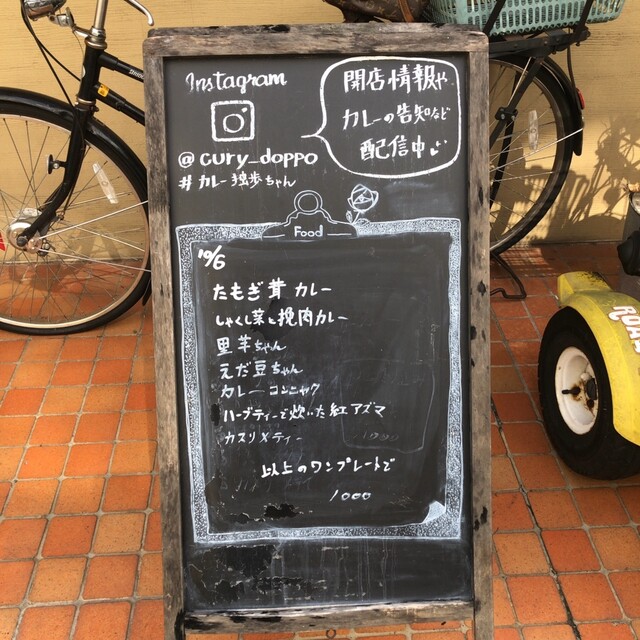 Instagram
@cury_doppo
#カレー独歩ちゃん
開店情報や
カレーの告知など
配信中
Food
10/6
たもぎ茸 カレー
しゃくし菜と挽肉カレー
里芋ちゃん
えだ豆ちゃん
カレーコンニャク
ハーブティーで炊いた紅アズマ
カスリメティー
以上のワンプレートで
1000